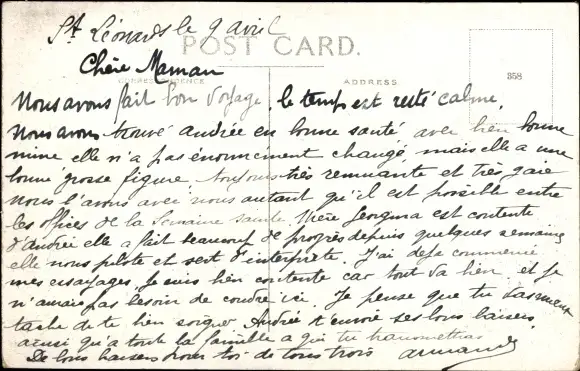 St Léonards le 9 avril
POST CARD.
Chère Maman
CORRESPONDENCE
ADDRESS
358
Nous avons fait bon voyage, le temps est resté calme.
Nous avons trouvé Andrée en bonne santé avec bien bonne
mine elle n'a pas énormement changé, mais elle a une
bonne grosse figure toujours très remuante et très gaie
nous l'avons avec nous autant qu'il est possible entre
les offices de la Semaine sainte Mère Georgina est contente
d'Andrée elle a fait beaucoup de progrès depuis quelques semaines
elle nous pilote et sert d'interprète. J'ai déjà commencé
mes essayages, je suis bien contente car tout va bien, et je
n'aurai pas besoin de coudre ici. Je pense que tu
tache de te bien soigner Andrée t'envoie ses bons baisers
ainsi qu'a toute la famille a qui tu transmettras
De bons baisers pour toi de tous trois Armande